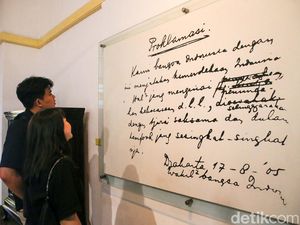 Proklamasi.
Kami bangsa Indonesia dengan
ini menjatakan kemerdekaan Indonesia
Hal² jang mengenai
kekoeasaan d.l.l., diselenggarakan
dengan tjara saksama dan dalam
tempoh jang sesingkat-singkat
nja.
Djakarta 17-8-'05
Wakil² bangsa Indon
detikcom